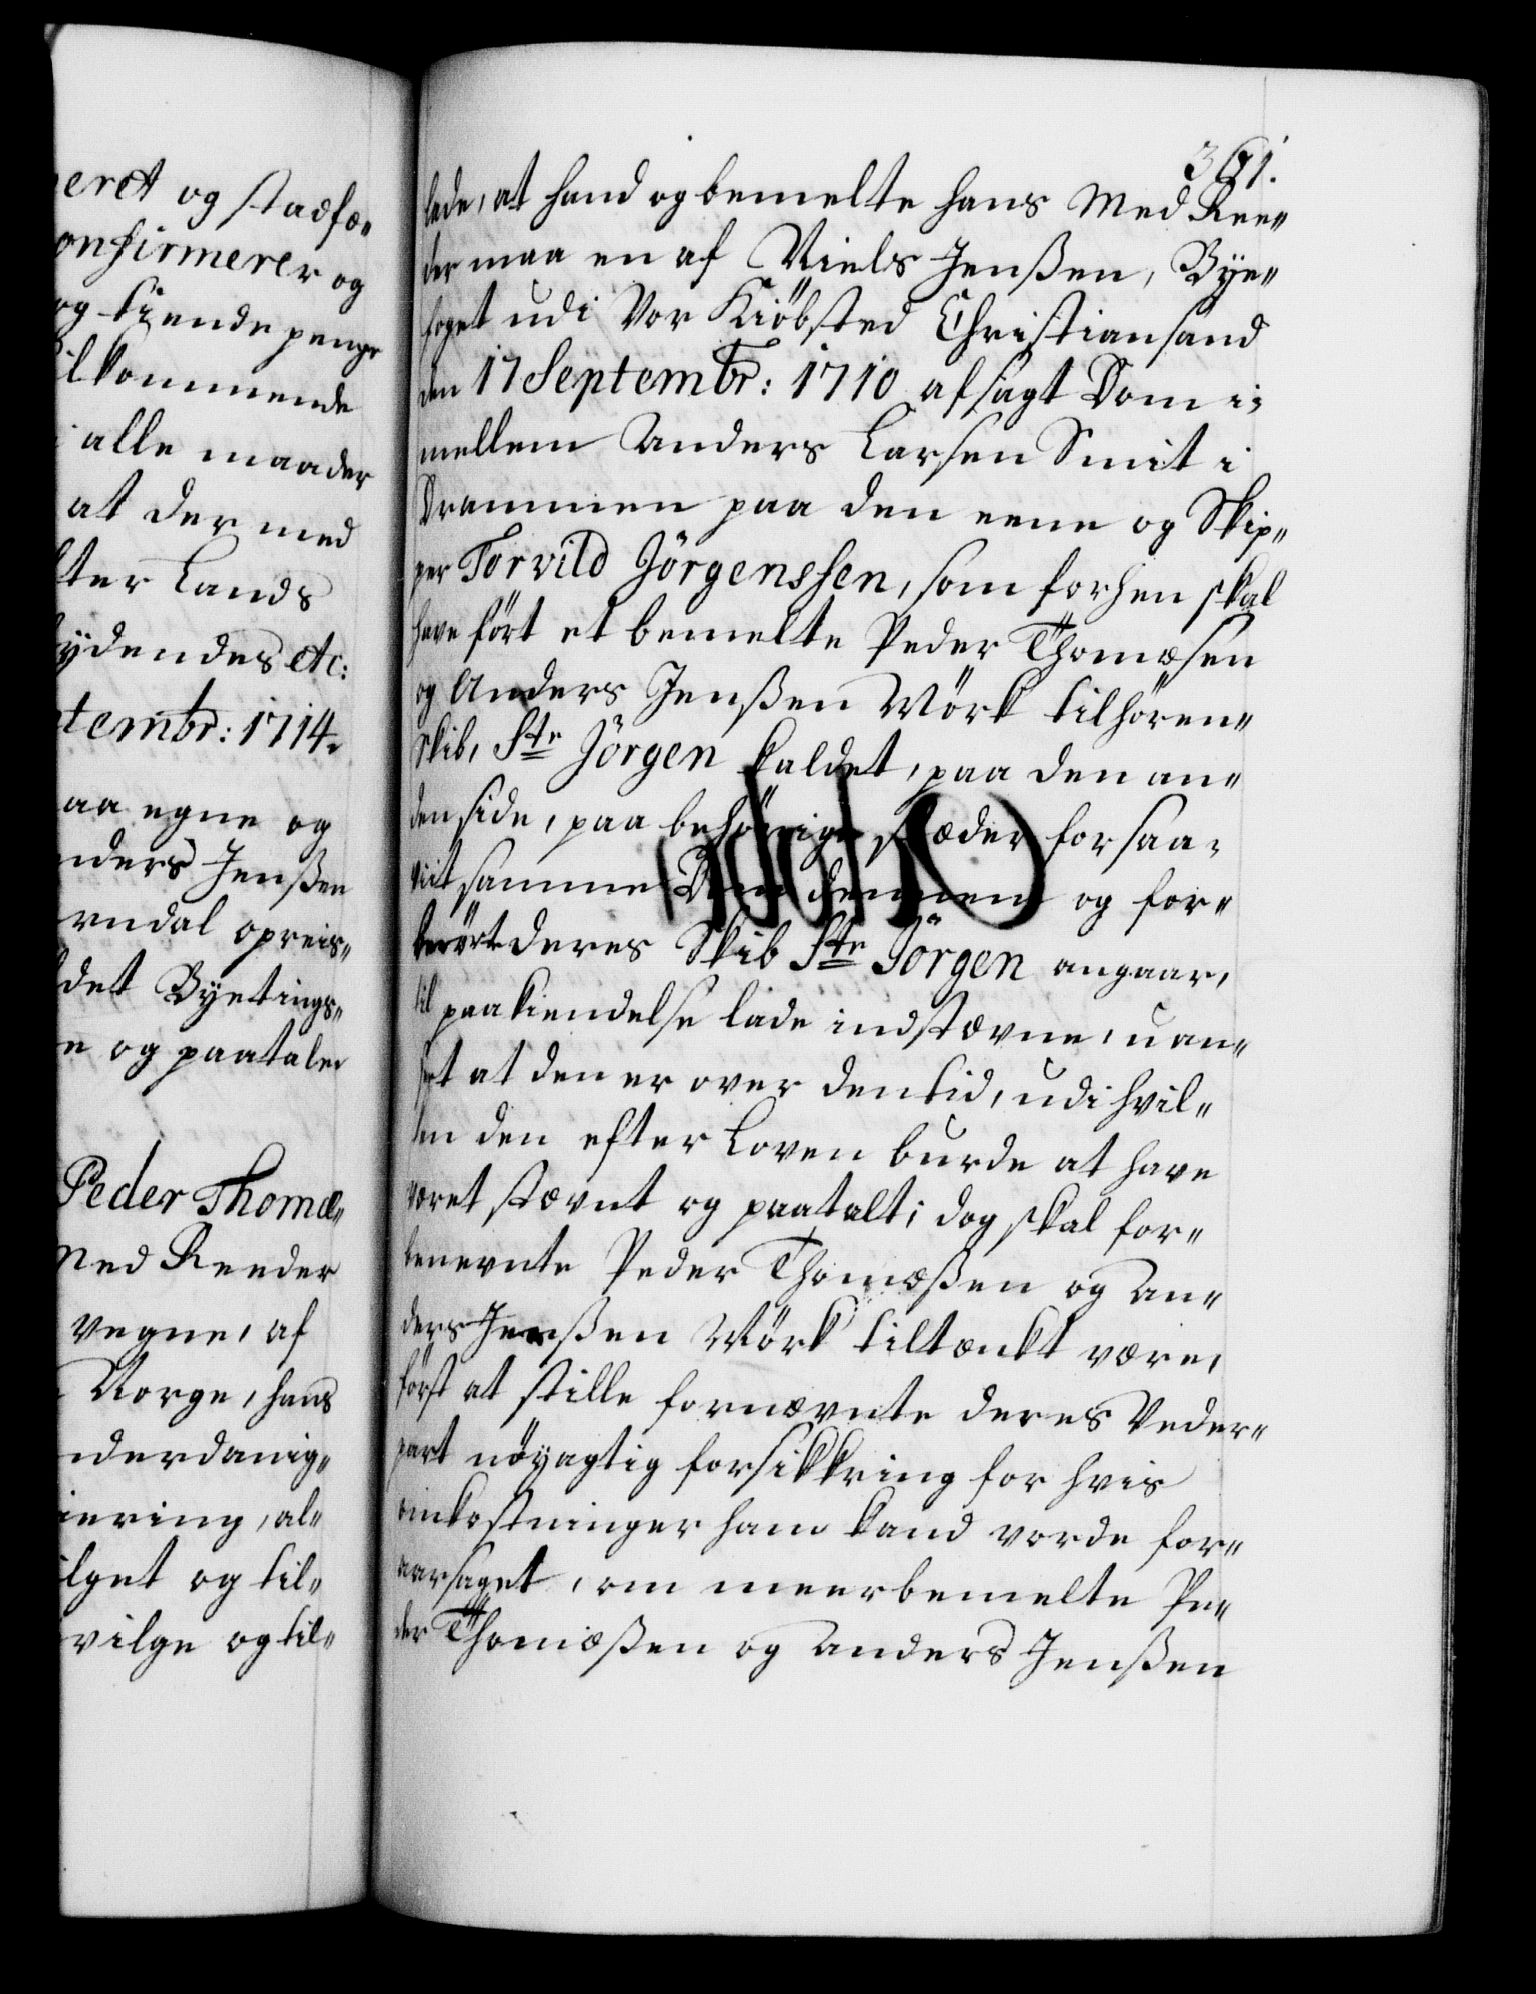 eret og stadfæ„
onfirmerer og
og tiende penge
ilkommende
alle maader
at der med
fter Lands
ydendes etc:
tembr: 1714.
aa egne og
nders Jenßen
rndal opreis„
det Byetings„
e og paatale
Peder Thomæ„
Med Reeder
vegne, af
Norge, hans
nderdanig„
iering, al„
ilget og til„
vilge og til„
361.
lade, at hand og bemelte hans Med Ree„
der maa en af Niels Jenßen, Bye„
foget udi Vor Kiöbsted Christiansand
den 17 Septembr: 1710 afsagt Dom i„
mellem Anders Larsen Smit i
Drammen paa den eene og Skip„
per Torvild Jörgenssen, som forhen skal
have fört et bemelte Peder Thomæsen
og Anders Jenßen Mörk tilhören„
Skib, Ste Jörgen kaldet, paa den an„
den side, paa behörige stæder forsaa„
viit samme Dom dennem og for„
berörte deres Skib Ste Jörgen angaar,
til paakiendelse lade indstævne, uan„
seet at den er over den tid, udi hvil„
ken den efter Loven burde at have
været stævnt og paatalt; dog skal for„
benevnte Peder Thomæßen og An„
ders Jenßen Mörk tiltænkt være,
först at stille fornævnte deres Veder„
part nöyagtig forsikkring for hvis
omkostninger ham kand vorde for„
aarsaget, om meerbemelte Pe„
der Thomæßen og Anders Jenßen